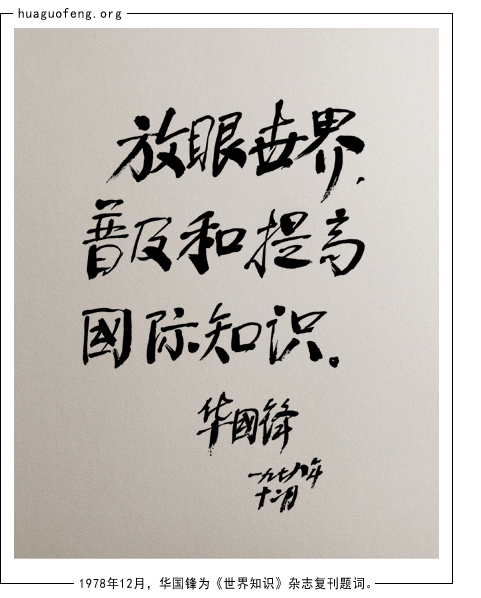 huaguofeng.org
放眼世界，
普及和提高
國际知识。
华國锋
一九七八年
十二月
1978年12月，华国锋为《世界知识》杂志复刊题词。